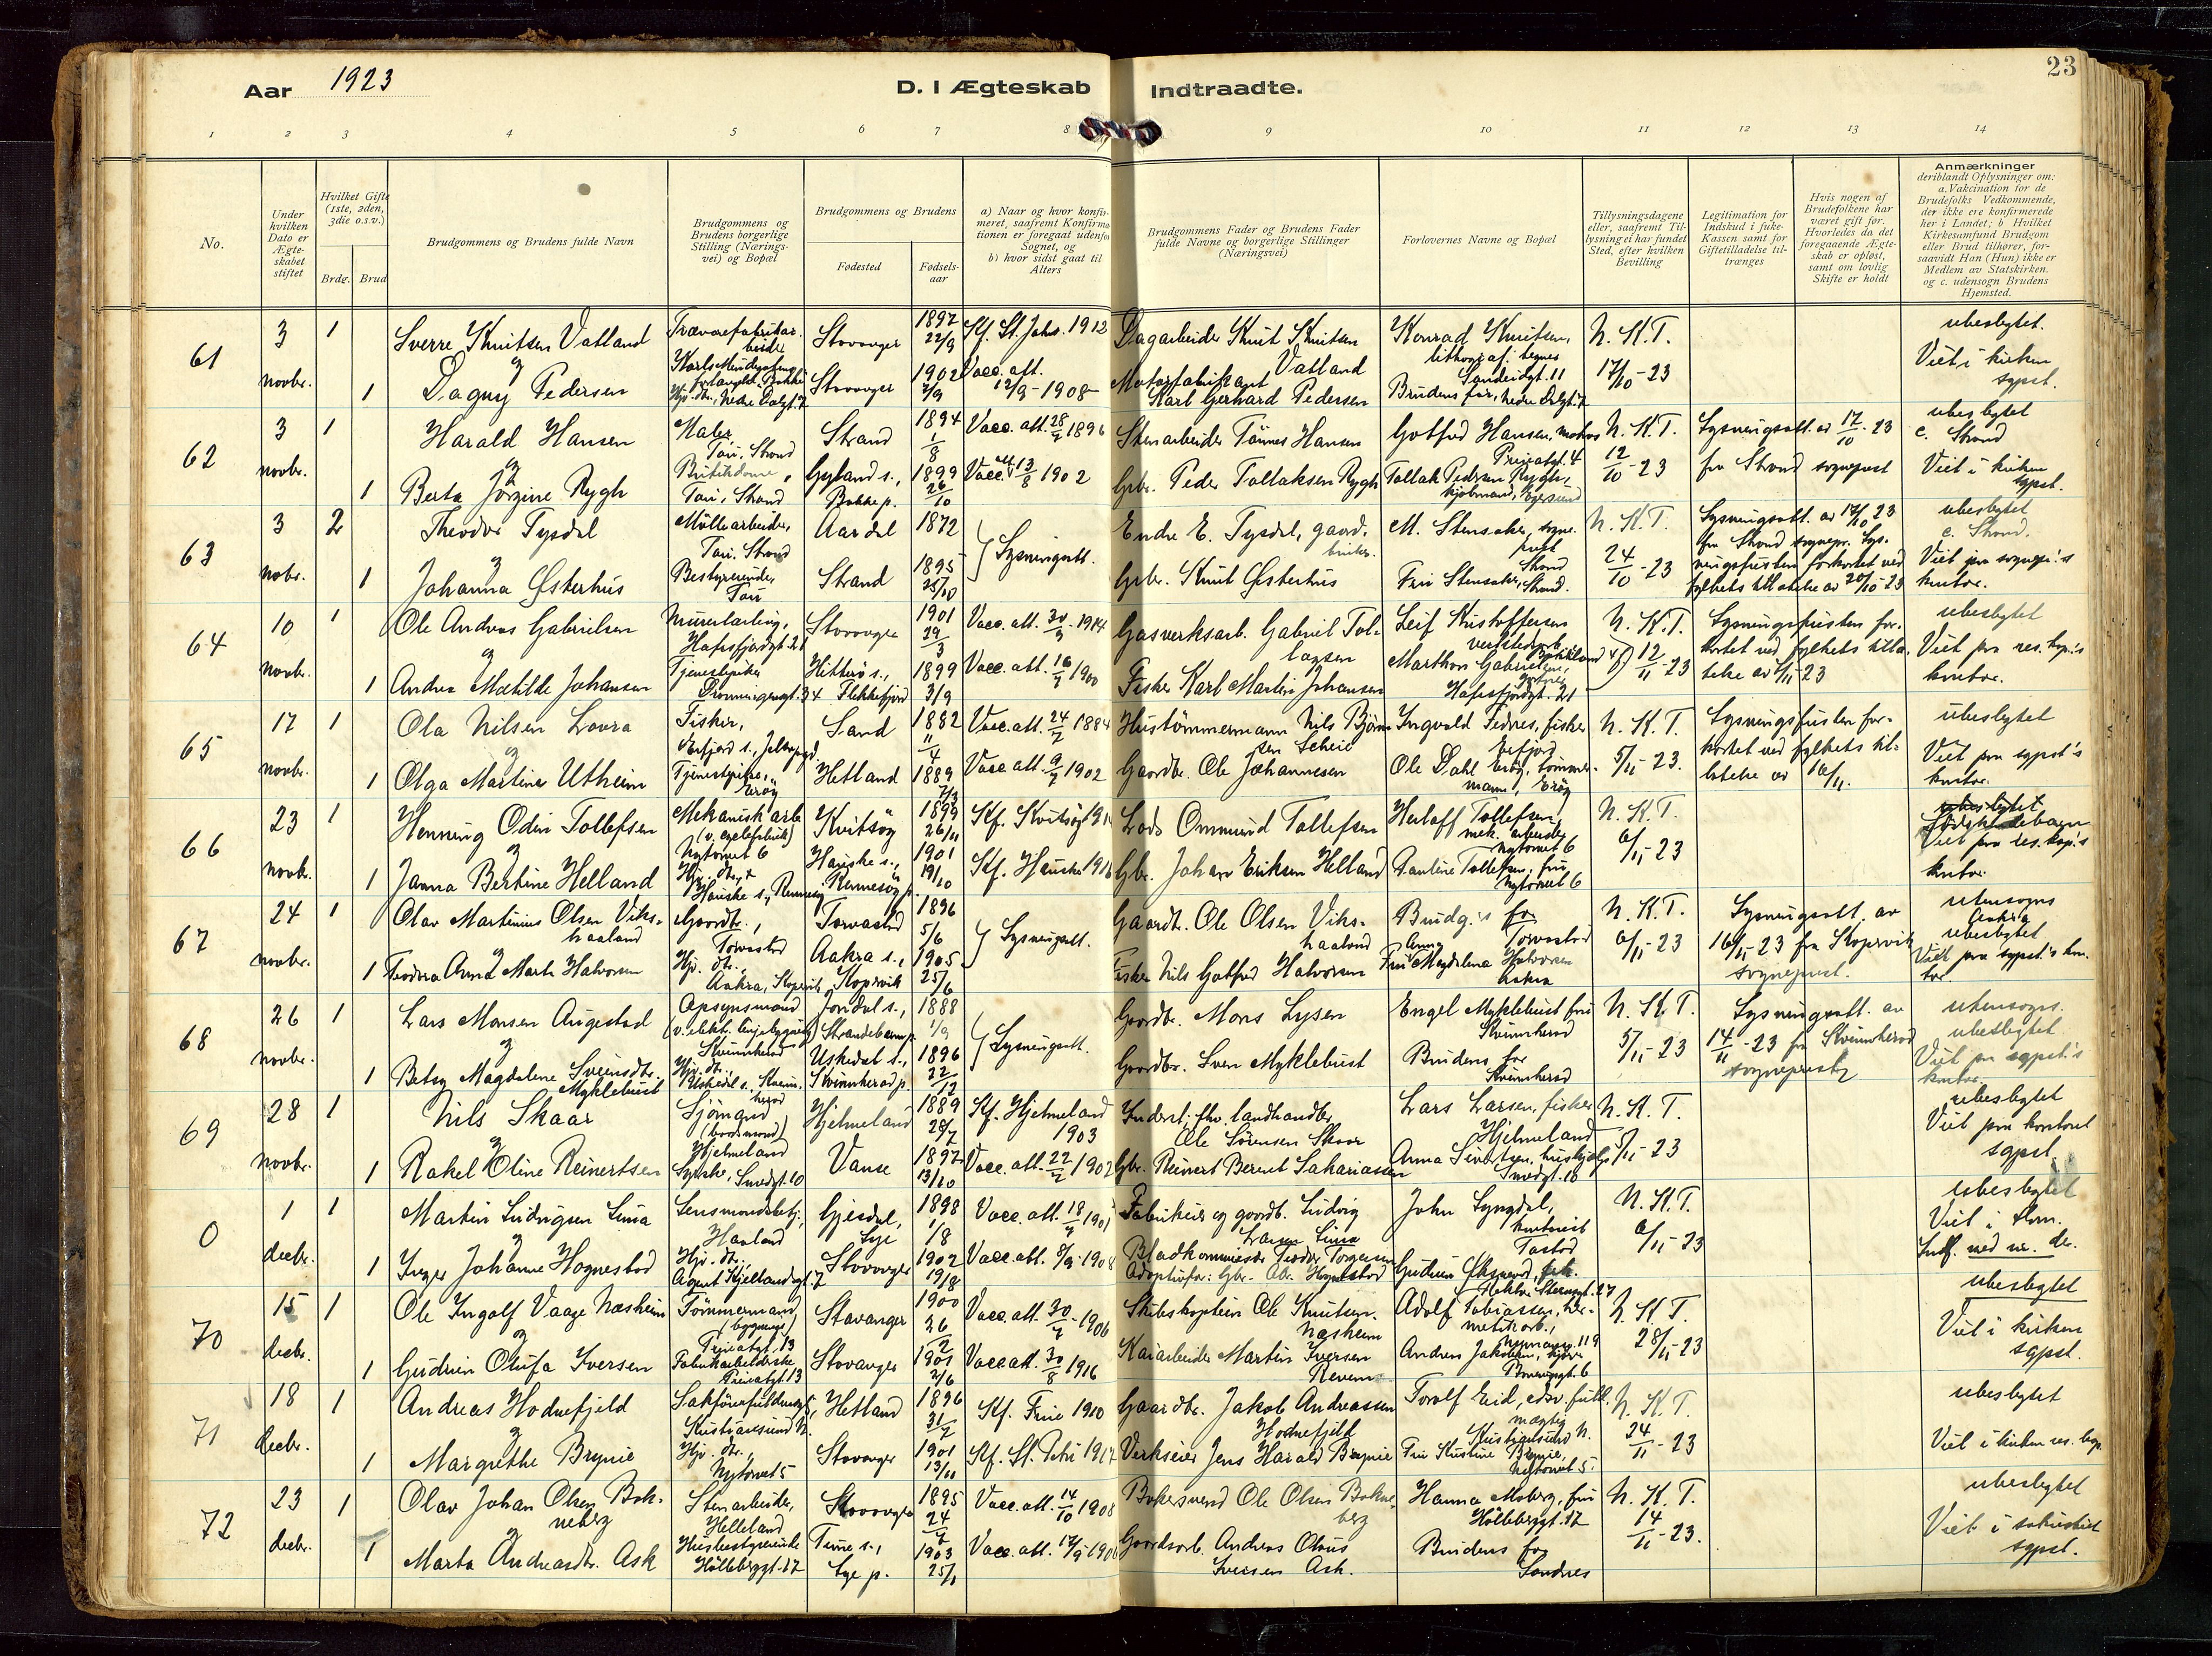 23
Aar 1923
D. I Ægteskab Indtraadte.
1 2 3 4 5 6 7 8 9 10 11 12 13 14
No.
Under hvilken Dato er Ægteskabet stiftet
Hvilket Gifte (1ste, 2den, 3die o.s.v.)
Brdg. Brud
Brudgommens og Brudens fulde Navn
Brudgommens og Brudens borgerlige Stilling (Næringsvei) og Bopæl
Brudgommens og Brudens
Fødested
Fødselsaar
a) Naar og hvor konfirmeret, saafremt Konfirmationen er foregaat udenfor Sognet, og
b) hvor sidst gaat til Alters
Brudgommens Fader og Brudens Fader fulde Navne og borgerlige Stillinger (Næringsvei)
Forlovernes Navne og Bopæl
Tillysningsdagene eller, saafremt Tillysning ei har fundet Sted, efter hvilken Bevilling
Legitimation for Indskud i fuke-Kassen samt for Giftetilladelse tiltrænges
Hvis nogen af Brudefolkene har været gift før. Hvorledes da det foregaaende Ægteskab er opløst, samt om lovlig Skifte er holdt
Anmærkninger
deriblandt Oplysninger om: a. Vakcination for de Brudefolks Vedkommende, der ikke ere konfirmerede her i Landet; b Hvilket Kirkesamfund Brudgom eller Brud tilhører, forsaavidt Han (Hun) ikke er Medlem av Statskirken. og c. udensogn Brudens Hjemsted.
61
3 novbr. 1 Sverre Knutsen Vatland Stavanger 1897 22/9 Kf. St. Joh. 1912 Dagarbeider Knut Knutsen Vatland Konrad Knutsen, N. K. T. ubeslegtet.
og
1 Dagny Pedersen Stavanger 1902 2/9 Vacc. att. 12/9 - 1908 Motorfabrikant Karl Gerhard Pedersen Brudens far, nedre Dalgt. 7 17/10 - 23 Viet i kirken sgpst.
62
3 novbr. 1 Harald Hansen Maler, Tau, Strand Strand 1894 1/8 Vacc. att. 28/7 1896 Stenarbeider Tönnes Hansen Gotfred Hansen, Privatgt. 4 N. K. T. Lysningsatt. av 17/10 - 23 ubeslegtet c. Strand
og
1 Berta Jorgine Rygh Tau, Strand Gyland s., Bakke p. 1899 26/10 Vacc. att. 13/8 1902 Gbr. Peder Tollaksen Rygh Tollak Pedersen Rygh, 12/10 - 23 fra Strand sogneprest Viet i kirken sgpst.
63
3 nobr. 2 Theodor Tysdal Möllearbeider, Tau, Strand Aardal 1872 Lysningsatt. Endre E. Tysdal, gaardbruker. M. Stensaker, sogneprest Strand N. K. T. Lysningsatt. av 17/10 23 ubeslegtet c. Strand.
og
1 Johanna Østerhus Bestyrerinde, Tau Strand 1895 25/10 Gbr. Knut Østerhus Fru Stensaker, Strand. 24/10 - 23 fra Strand sognepr. Lysningsfristen forkortet ved fylkets tillatelse av 20/10 - 23 Viet paa sognepr.'s kontor.
64
10 novbr. 1 Ole Andreas Gabrielsen Murerlærling, Hafrsfjordgt. 21 Stavanger 1901 29/3 Vacc. att. 30/9 - 1914 Gasverksarb. Gabriel Tollagsen Leif Kristoffersen N. K. T. Lysningsfristen forubeslegtet
og
1 Andrea Matilde Johansen Tjenestepike Dronningensgt. 34 Hitterö s., Flekkefjord 1899 3/9 Vacc. att. 16/7 1900 Fisker Karl Martin Johansen Marthon Gabrielsen, Hafrsfjordgt. 21 12/11 - 23 kortet ved fylkets tillatelse av 9/11 - 23 Viet paa res. kap.'s kontor.
65
17 novbr. 1 Ola Nilsen Lovra Fisker, Sand 1882 11/4 Vacc. att. 24/7 1884 Hustömmermann Nils Björnsen Scheie Ingvald Tednes, fisker N. K. T. Lysningsfristen forubeslegtet
og
1 Olga Martine Utheim Tjenestepike, Erøy Hetland 1889 7/3 Vacc. att. 9/7 1902 Gaardbr. Ole Johannesen Ole Dahl Erøy, tömmermann, Erøy 5/11 - 23. kortet ved fylkets tillatelse av 16/11. Viet paa sgpst's kontor.
66
23 novbr. 1 Henning Odin Tollefsen Mekanisk arb. Nytorvet 6 Kvitsöy 1899 26/11 Kf. Kvitsöy Lods Ommund Tollefsen Herlaff Tollefsen, mek. arbeider Nytorvet 6 N. K. T. ubeslegtet
og
1 Janna Bertine Helland Hj. dtr., Hauske s., Rennesöy Hauske s., Rennesöy p. 1901 19/10 Kf. Hauske Gbr. Johan Eriksen Helland Pauline Tollefsen, fru Nytorvet 6 6/11 - 23 Viet paa res. kap.'s kontor.
67
24 novbr. 1 Olav Martinius Olsen Vikshaaland Gaardbr., Torvastad Torvastad 1896 5/6 Lysningsatt. Gaardbr. Ole Olsen Vikshaaland Brudg.'s far Torvastad N. K. T. Lysningsatt. av utensogns Aakra ubeslegtet
og
1 Teodora Anna Marti Halvorsen Hj. dtr., Aakra, Kopervik Aakra s., Kopervik 1905 25/6 Fisker Nils Gotfred Halvorsen Fru Anna Magdalena Halvorsen Aakra 6/11 - 23 16/11 - 23 fra Kopervik sogneprest. Viet paa sgpst.'s kontor
68
26 novbr. 1 Lars Monsen Augestad Opsynsmand Kvinnherad Jondal s., Strandebarm p. 1888 1/9 Lysningsatt. Gaardbr. Mons Lysen Engel Myklebust fru Kvinnherad N. K. T. Lysningsatt. av utensogns. ubeslegtet
og
1 Betsy Magdalene Sveinsdtr. Myklebust Hj. dtr., Uskedal s., Kvinnherad Uskedal s., Kvinnherad p. 1896 22/12 Gaardbr. Sven Myklebust Brudens far Kvinnherad 5/11 - 23 14/11 - 23 fra Kvinnherad sogneprest Viet paa sgpst.'s kontor.
69
28 novbr. 1 Nils Skaar Sjömand Hjelmeland Hjelmeland 1889 29/7 Kf. Hjelmeland 1903 Inderst, fhv. landhandler Ole Sörensen Skaar Lars Larsen, fisker Hjelmeland N. K. T. ubeslegtet
og
1 Rakel Oline Reinertsen Syerske, Smedgt. 10 Vanse 1897 13/10 Vacc. att. 22/7 1902 Gbr. Reinert Bernt Sakariassen Anna Sivertsen, hushjelp Smedgt. 10 5/11 - 23 Viet paa kontoret sgpst.
0
1 decbr. 1 Martin Ludvigsen Lima Lensmandsbetj., Haaland Gjesdal, Lye 1898 1/8 Vacc. att. 18/7 1901 Fabrikeier og gaardb. Ludvig Larsen Lima John Lyngdal, kontorist Tastad N. K. T. ubeslegtet
og
1 Inger Johanne Hognestad Hj. dtr., Agent Kjellandsgt. 7 Stavanger 1902 19/8 Vacc. att. 8/9 - 1908 Bladkommissær Teodor Torgersen Adoptivfar: Gbr. Ole Hognestad Gudrun Öksnevad, frk. 6/11 - 23 Viet i hjem.
70
15 decbr. 1 Ole Ingolf Vaage Næsheim Tömmermand, Privatgt. 13 Stavanger 1900 26/2 Vacc. att. 30/7 - 1906 Skibskaptein Ole Knutsen Næsheim Adolf Tobiassen, hermetikarb., N. K. T. ubeslegtet
og
1 Gudrun Olufa Iversen Fabrikarbeiderske Privatgt. 13 Stavanger 1901 2/6 Vacc. att. 30/8 1916 Kaiarbeider Martin Iversen Revem Andreas Jakobsen, 28/11 - 23 Viet i kirken sgpst.
71
18 decbr. 1 Andreas Hodnefjeld Sakförerfuldmegt., Kristiansund N. Hetland 1896 31/7 Kf. Frue 1910 Gaardbr. Jakob Andreassen Hodnefjeld Torolf Eid, edsv. fuldmægtig Kristiansund N. N. K. T. ubeslegtet
og
1 Margrethe Brynie Hj. dtr., Nytorvet 5 Stavanger 1901 13/11 Kf. St. Petri 1917 Verkseier Jens Harald Brynie Fru Kristine Brynie, Nytorvet 5. 24/11 - 23 Viet i kirken res. kap.
72
23 decbr. 1 Olav Johan Olsen Bokneberg Stenarbeider, Helleland Stavanger 1895 24/7 Vacc. att. 14/10 1908 Bakersvend Ole Olsen Bokneberg Hanna Moberg, fru Hollebergt. 17 N. K. T. ubeslegtet
og
1 Marta Andreasdtr. Ask Husbestyrerinde Hollebergt. 17 Time s., Lye p. 1903 25/1 Vacc. att. 17/9 - 1906 Gaardsarb. Andreas Olaus Iversen Ask. Brudens far Sandnes 14/11 - 23. Viet i sakristiet sgpst.